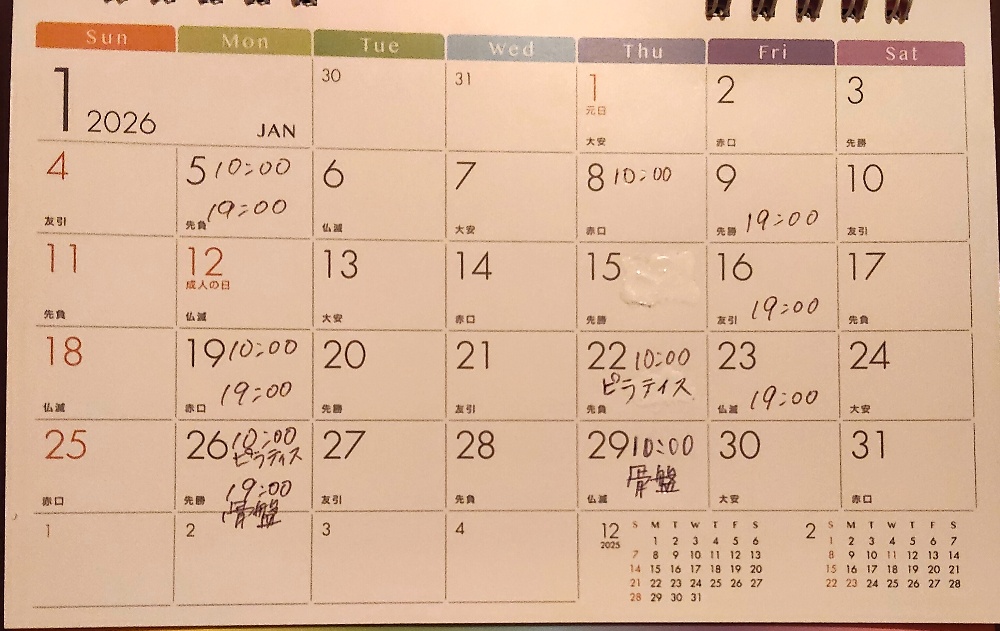 Sun Mon Tue Wed Thu Fri Sat
1 2026 JAN
30
31
1
元日
大安
2
赤口
3
先勝
4
友引
5 10:00
19:00
先負
6
仏滅
7
大安
8 10:00
赤口
9
19:00
先勝
10
友引
11
先負
12
成人の日
仏滅
13
大安
14
赤口
15
先勝
16
19:00
友引
17
先負
18
仏滅
19 10:00
19:00
赤口
20
先勝
21
友引
22 10:00
ピラティス
先負
23
19:00
仏滅
24
大安
25
赤口
26 10:00
ピラティス
19:00
先勝
骨盤
27
友引
28
先負
29 10:00
骨盤
仏滅
30
大安
31
赤口
1
2
3
4
12
2025
S M T W T F S
1 2 3 4 5 6
7 8 9 10 11 12 13
14 15 16 17 18 19 20
21 22 23 24 25 26 27
28 29 30 31
2
S M T W T F S
1 2 3 4 5 6 7
8 9 10 11 12 13 14
15 16 17 18 19 20 21
22 23 24 25 26 27 28